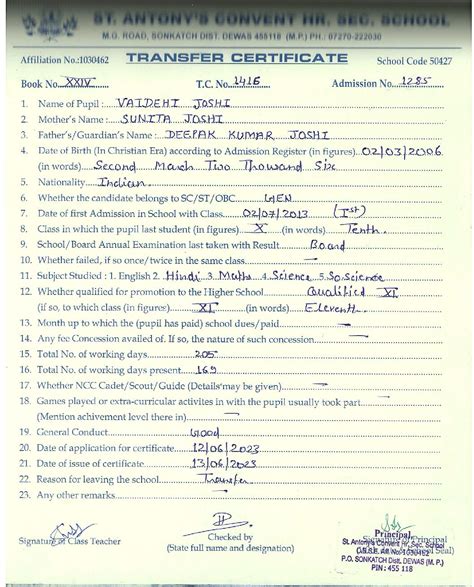 ST. ANTONY'S CONVENT HR. SEC. SCHOOL
M.G. ROAD, SONKATCH DIST. DEWAS 455118 (M.P.) PH.: 07270-222030
Affiliation No.:1030462 TRANSFER CERTIFICATE School Code 50427
Book No. XXIV T.C. No. 1416 Admission No. 1285
1. Name of Pupil : VAIDEHI JOSHI
2. Mother's Name : SUNITA JOSHI
3. Father's/Guardian's Name : DEEPAK KUMAR JOSHI
4. Date of Birth (In Christian Era) according to Admission Register (in figures) 02/03/2006
(in words) Second March Two Thousand Six
5. Nationality Indian
6. Whether the candidate belongs to SC/ST/OBC GEN
7. Date of first Admission in School with Class 02/07/2013 (Ist)
8. Class in which the pupil last student (in figures) X (in words) Tenth
9. School/Board Annual Examination last taken with Result Board
10. Whether failed, if so once/twice in the same class —
11. Subject Studied : 1. English 2. Hindi 3. Maths 4. Science 5. So.Science
12. Whether qualified for promotion to the Higher School Qualified XI
(if so, to which class (in figures) XI (in words) Eleventh
13. Month up to which the (pupil has paid) school dues/paid —
14. Any fee Concession availed of. If so, the nature of such concession —
15. Total No. of working days 205
16. Total No. of working days present 169
17. Whether NCC Cadet/Scout/Guide (Details may be given) —
18. Games played or extra-curricular activites in with the pupil usually took part
(Mention achivement level there in) —
19. General Conduct Good
20. Date of application for certificate 12/06/2023
21. Date of issue of certificate 13/06/2023
22. Reason for leaving the school Transfer
23. Any other remarks —
Signature of Class Teacher
Checked by
(State full name and designation)
Signature of Principal
Principal
St. Antony's Convent Hr. Sec. School
C.B.S.E. Aff. No. 1030462
P.O. SONKATCH DIST. DEWAS (M. P.)
PIN : 455 118